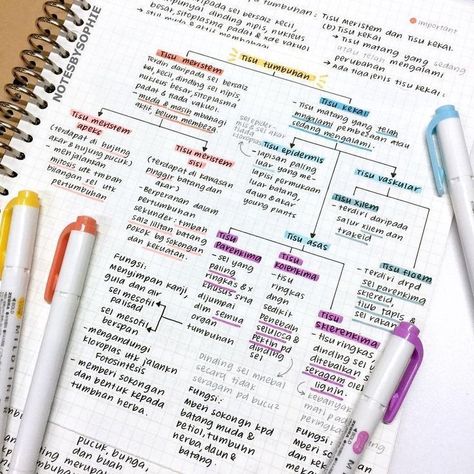 NOTESBYSOPHIE
tumbuhan: Tisu Meristem dan Tisu Kekal
important
(b) Tisu Kekal
Tisu matang yang sedang
atau telah
perubahan mengalami
Ada tiga jenis tisu kekal:
Tisu tumbuhan
Tisu meristem
Terdiri daripada sel bersaiz
kecil, dinding sel nipis,
nukleus besar, sitoplasma
padat & tiada vakuol.
muda & masih mbahagi
aktif, belum membeza
Tisu kekal
Tisu matang yang telah
mngalami pembezaan atau
sedang mengalami.
Tisu meristem
apeks
(terdapat di hujung
akar & hujung pucuk)
menjalankan
mitosis utk tmbah
bilangan sel utk
pertumbuhan
Tisu meristem
sisi
(terdapat di kawasan
pinggir batang dan
akar)
Berperanan dalam
pertumbuhan
sekunder: tmbah
saiz lilitan batang
pokok bg sokongan
dan kekuatan.
Tisu epidermis
lapisan paling
luar yang me-
lapisi permukaan
daun, batang,
dan akar
young plants
Tisu vaskular
Tisu xilem
terdiri daripada
salur xilem dan
trakeid
Tisu asas
Tisu floem
terdiri drpd
sel parenkima
sklereid
tiub tapis
sel rakan
Tisu
Parenkima
sel yang
paling
ringkas &
khusus srta
dijumpai
dlm semua
organ
tumbuhan
Tisu
kolenkima
tisu
ringkas
dngn
sedikit
Penebalan
selulosa &
pektin pd
dinding
sel
Tisu
sklerenkima
tisu ringkas
dinding sel
ditebalkan
seragam
lignin.
kebanyakan
mati pada
Dinding sel menebal
secara tidak
seragam pd bucu2
Fungsi:
Menyimpan kanji,
gula dan air
sel mesofil
palisad
sel mesofil
berspan
mengandungi
kloroplas utk jalankn
Fotosintesis
memberi sokongan
dan bentuk kepada
tumbhan herba.
Fungsi:
Mberi sokongn kpd
batang muda &
petiol, tumbuhn
herba, daun &
batang.
Fungsi:
Mberi
pucuk, bunga
dan buah